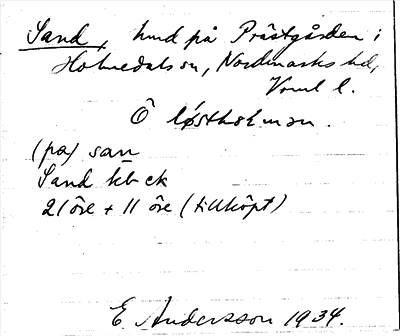 Sand, hmd på Prästgården i
Holmedals sn, Nordmarks hd,
Vrml l.
Ö löstholmen.
(pa) san
Sand kb ck
21 öre + 11 öre (tillköpt)
E. Andersson 1934.